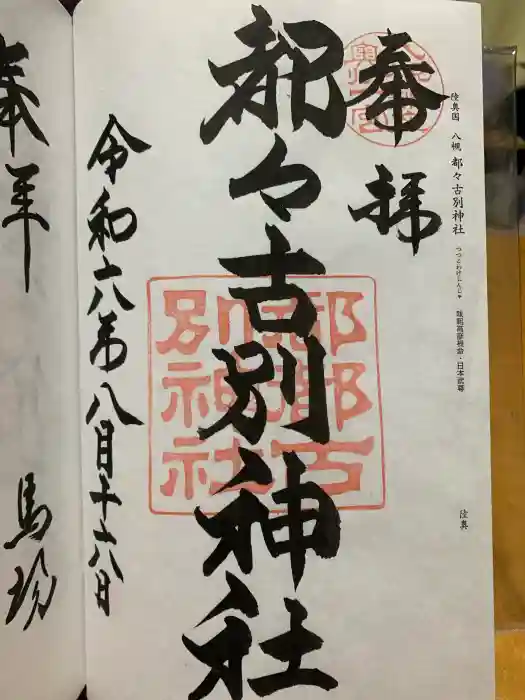 陸奥国 八槻 都々古別神社
つつこわけじんじゃ
味耜高彦根命・日本武尊
陸奥
奉拝
都々古別神社
都都古
別神社
令和六年八月十六日
奉拝
馬場